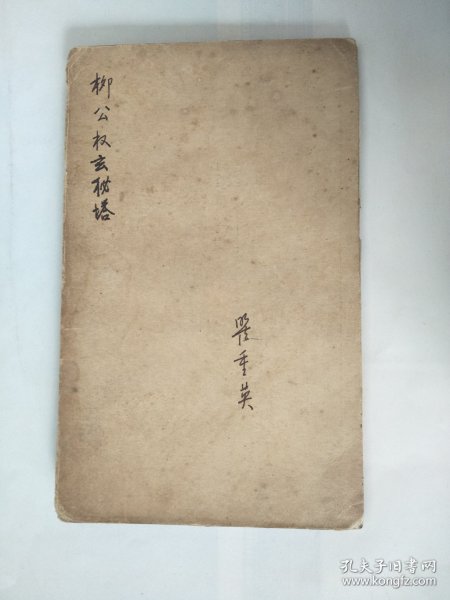 柳公权玄秘塔
重英
孔夫子旧书网
www.kongfz.com